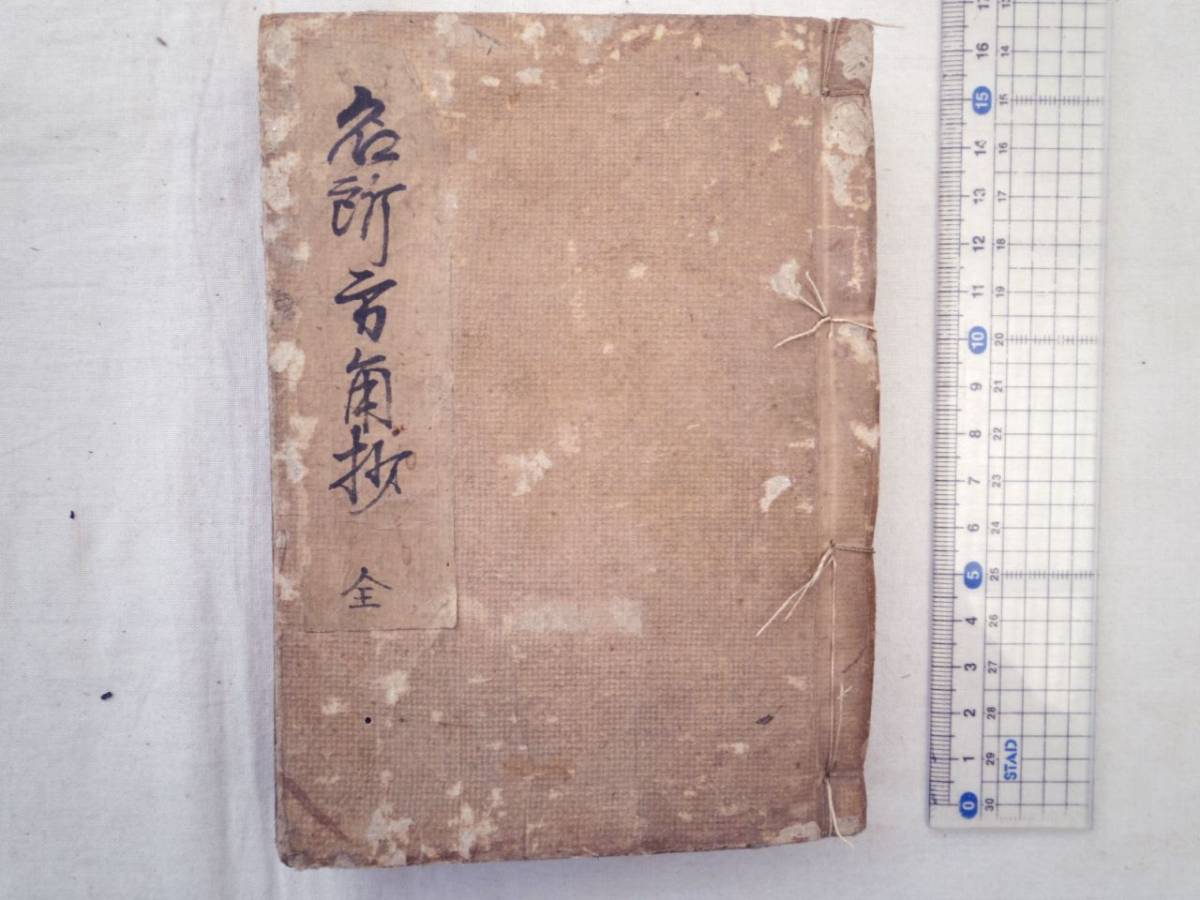 名所方角抄
全
17
16
15
14
13
12
11
10
9
8
7
6
5
4
3
2
1
0
13
14
15
16
17
18
19
20
21
22
23
24
25
26
27
28
29
30
STAD